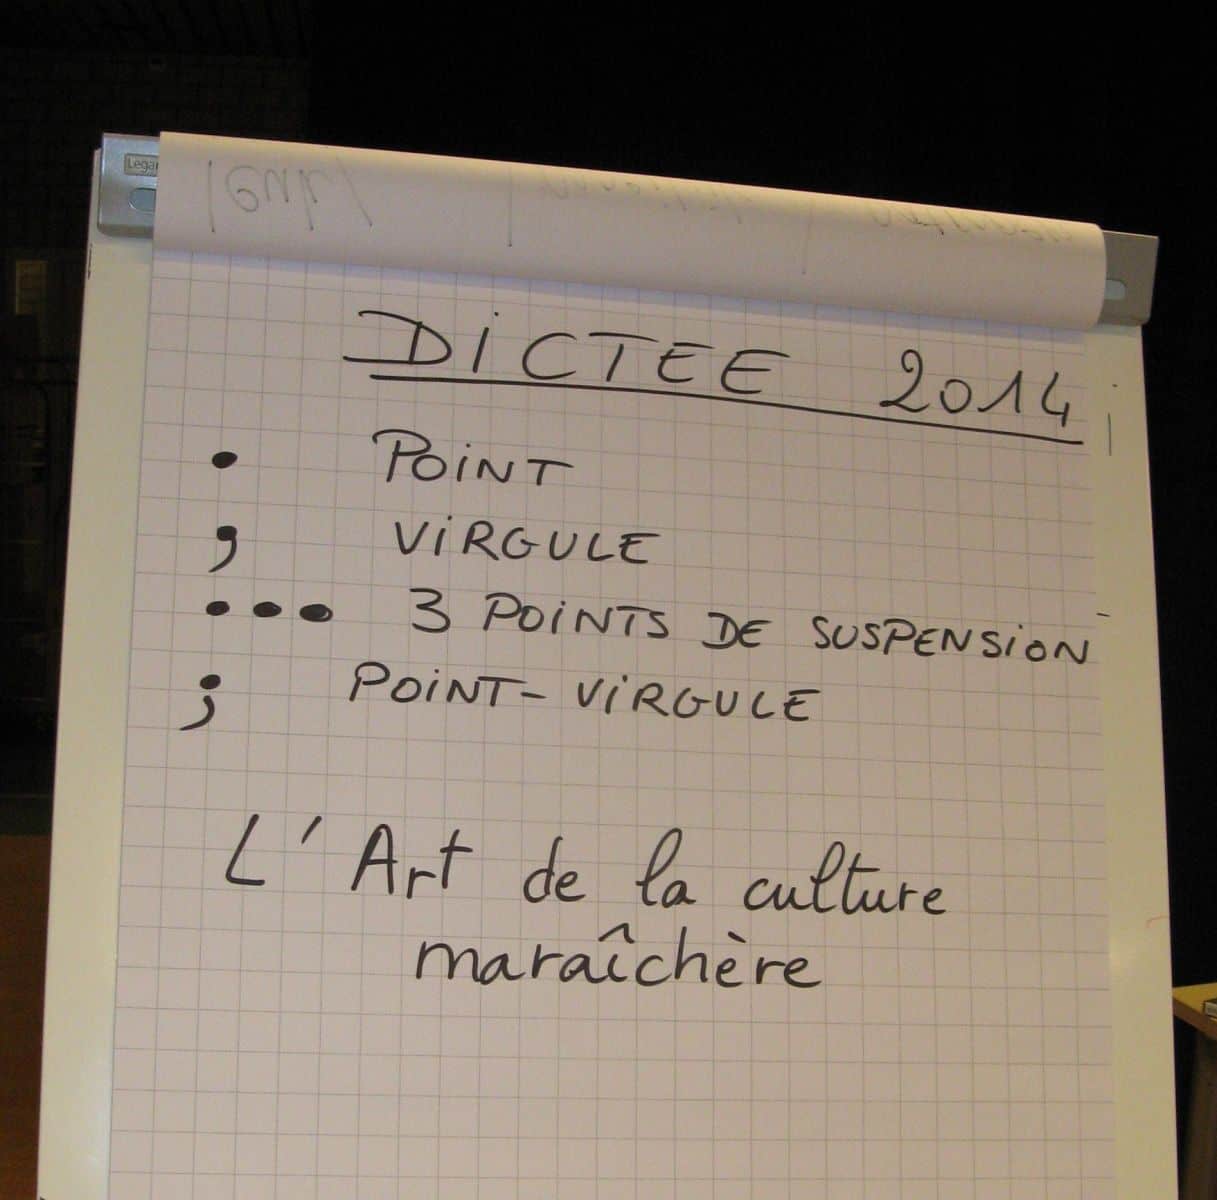 DICTEE 2014
• POINT
, VIRGULE
••• 3 POINTS DE SUSPENSION
; POINT-VIRGULE
L'Art de la culture
maraîchère